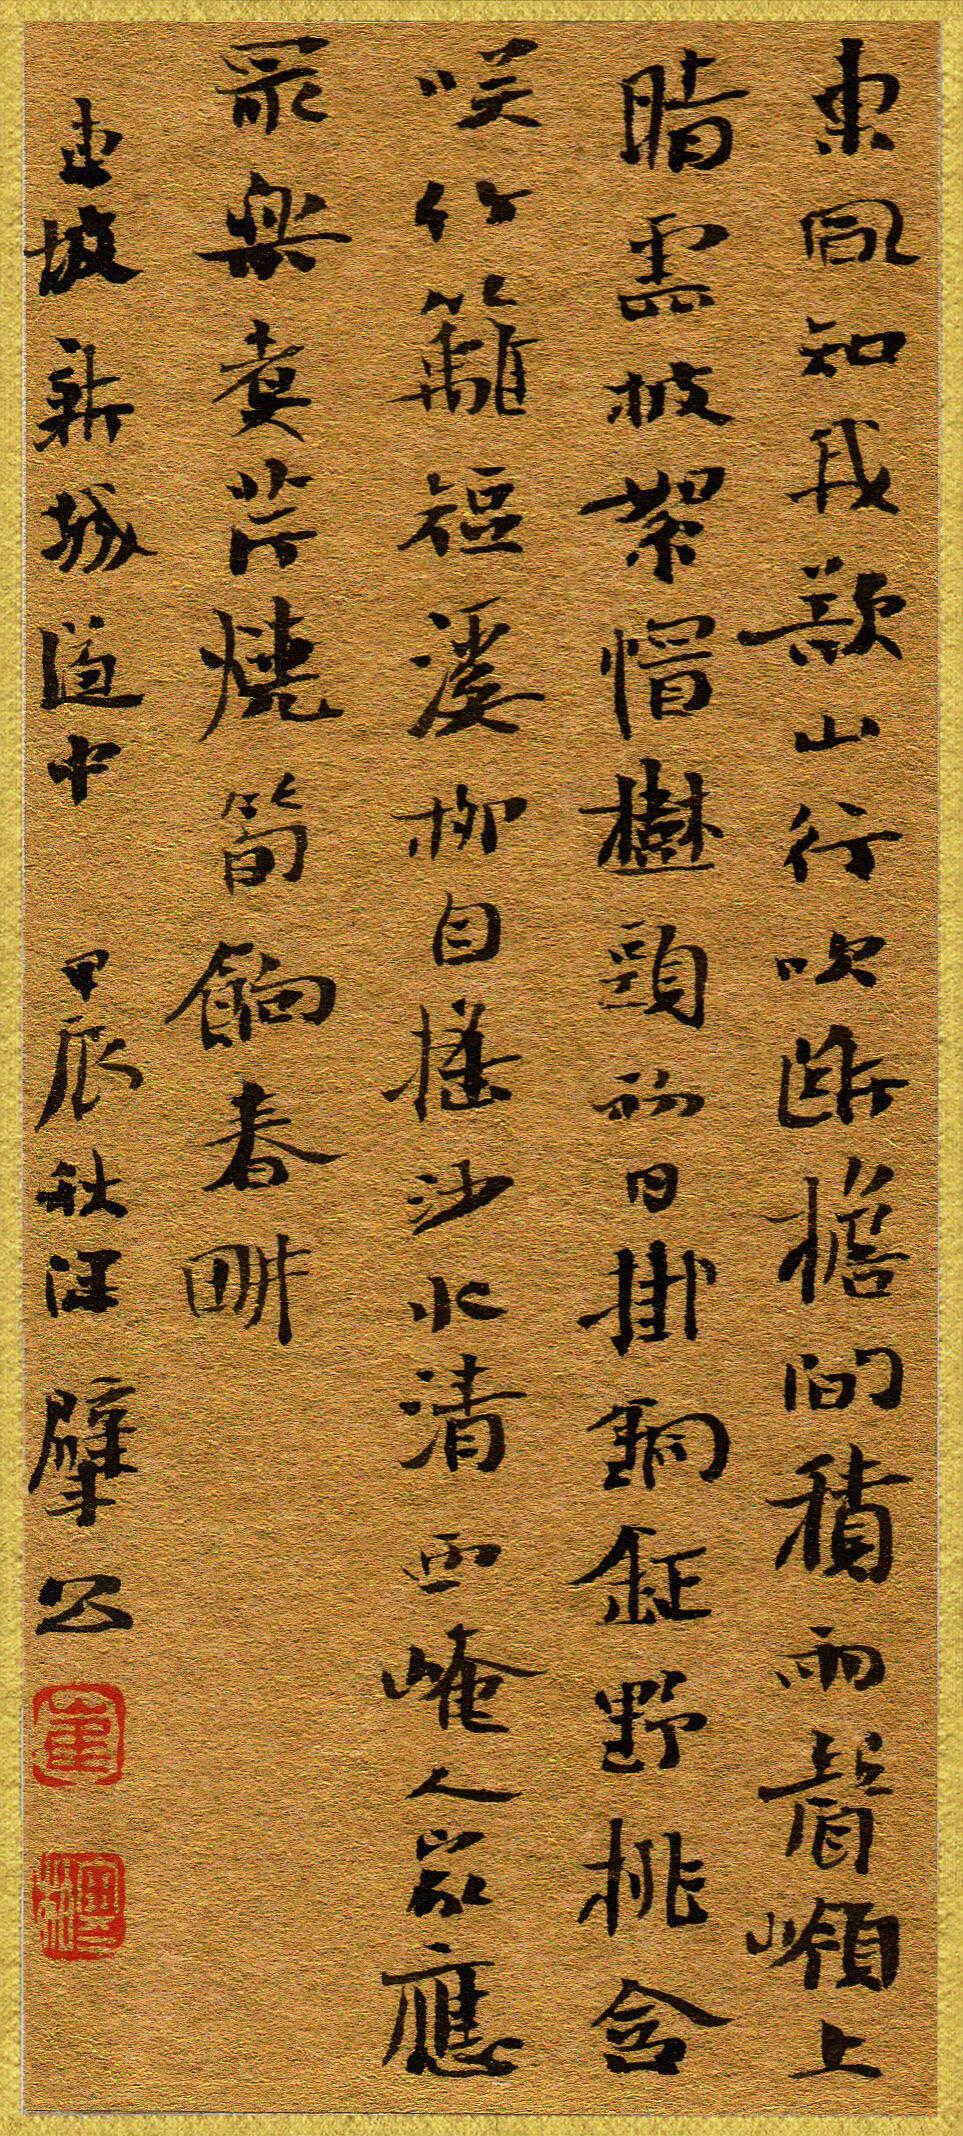 東風知我欲山行吹斷檐間積雨聲嶺上
晴雲披絮帽樹頭初日掛銅鉦野桃含
咲竹籬短溪柳自搖沙水清西崦人家應
最樂煮芹燒筍餉春畊
東坡新城道中 甲辰秋汪擘公